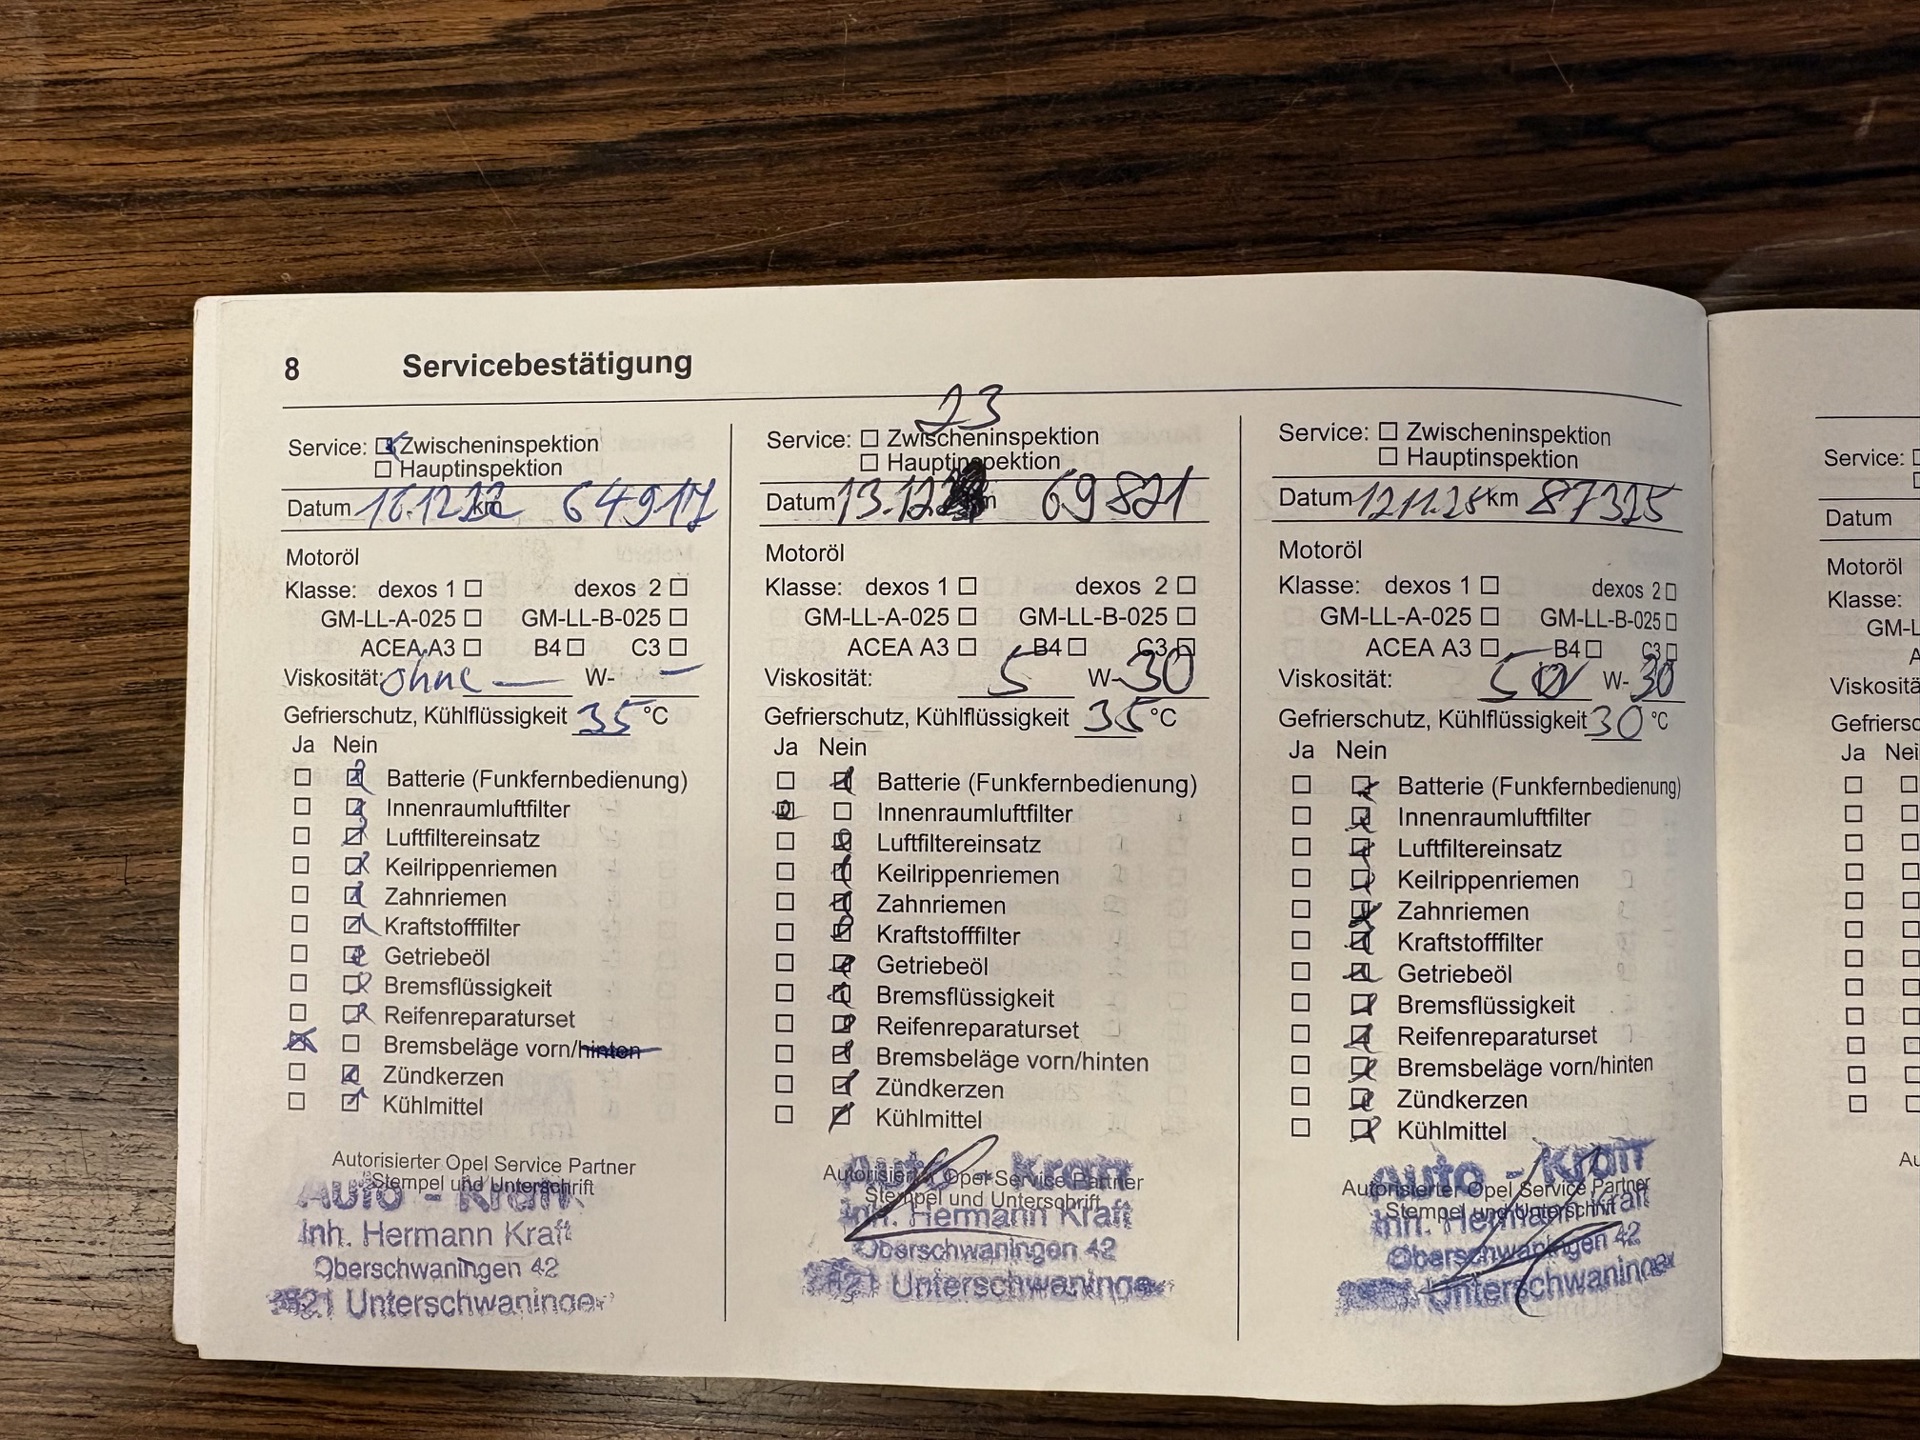 8 Servicebestätigung
Service: Zwischeninspektion
Hauptinspektion
Datum 16.12.22 km 64917
Motoröl
Klasse: dexos 1 dexos 2
GM-LL-A-025 GM-LL-B-025
ACEA A3 B4 C3
Viskosität: ohne — W- —
Gefrierschutz, Kühlflüssigkeit 35 °C
Ja Nein
Batterie (Funkfernbedienung)
Innenraumluftfilter
Luftfiltereinsatz
Keilrippenriemen
Zahnriemen
Kraftstofffilter
Getriebeöl
Bremsflüssigkeit
Reifenreparaturset
Bremsbeläge vorn/hinten
Zündkerzen
Kühlmittel
Autorisierter Opel Service Partner
Stempel und Unterschrift
Auto - Kraft
Inh. Hermann Kraft
Oberschwaningen 42
Unterschwaningen
23
Service: Zwischeninspektion
Hauptinspektion
Datum 13.12. km 69821
Motoröl
Klasse: dexos 1 dexos 2
GM-LL-A-025 GM-LL-B-025
ACEA A3 B4 C3
Viskosität: 5 W-30
Gefrierschutz, Kühlflüssigkeit 35 °C
Ja Nein
Batterie (Funkfernbedienung)
Innenraumluftfilter
Luftfiltereinsatz
Keilrippenriemen
Zahnriemen
Kraftstofffilter
Getriebeöl
Bremsflüssigkeit
Reifenreparaturset
Bremsbeläge vorn/hinten
Zündkerzen
Kühlmittel
Autorisierter Opel Service Partner
Stempel und Unterschrift
Auto - Kraft
Inh. Hermann Kraft
Oberschwaningen 42
Unterschwaningen
Service: Zwischeninspektion
Hauptinspektion
Datum 12.11.25 km 87325
Motoröl
Klasse: dexos 1 dexos 2
GM-LL-A-025 GM-LL-B-025
ACEA A3 B4 C3
Viskosität: 5 W-30
Gefrierschutz, Kühlflüssigkeit 30 °C
Ja Nein
Batterie (Funkfernbedienung)
Innenraumluftfilter
Luftfiltereinsatz
Keilrippenriemen
Zahnriemen
Kraftstofffilter
Getriebeöl
Bremsflüssigkeit
Reifenreparaturset
Bremsbeläge vorn/hinten
Zündkerzen
Kühlmittel
Autorisierter Opel Service Partner
Stempel und Unterschrift
Auto - Kraft
Inh. Hermann Kraft
Oberschwaningen 42
Unterschwaningen
Service:
Datum
Motoröl
Klasse:
GM-L
Viskositä
Gefriersc
Ja Nei